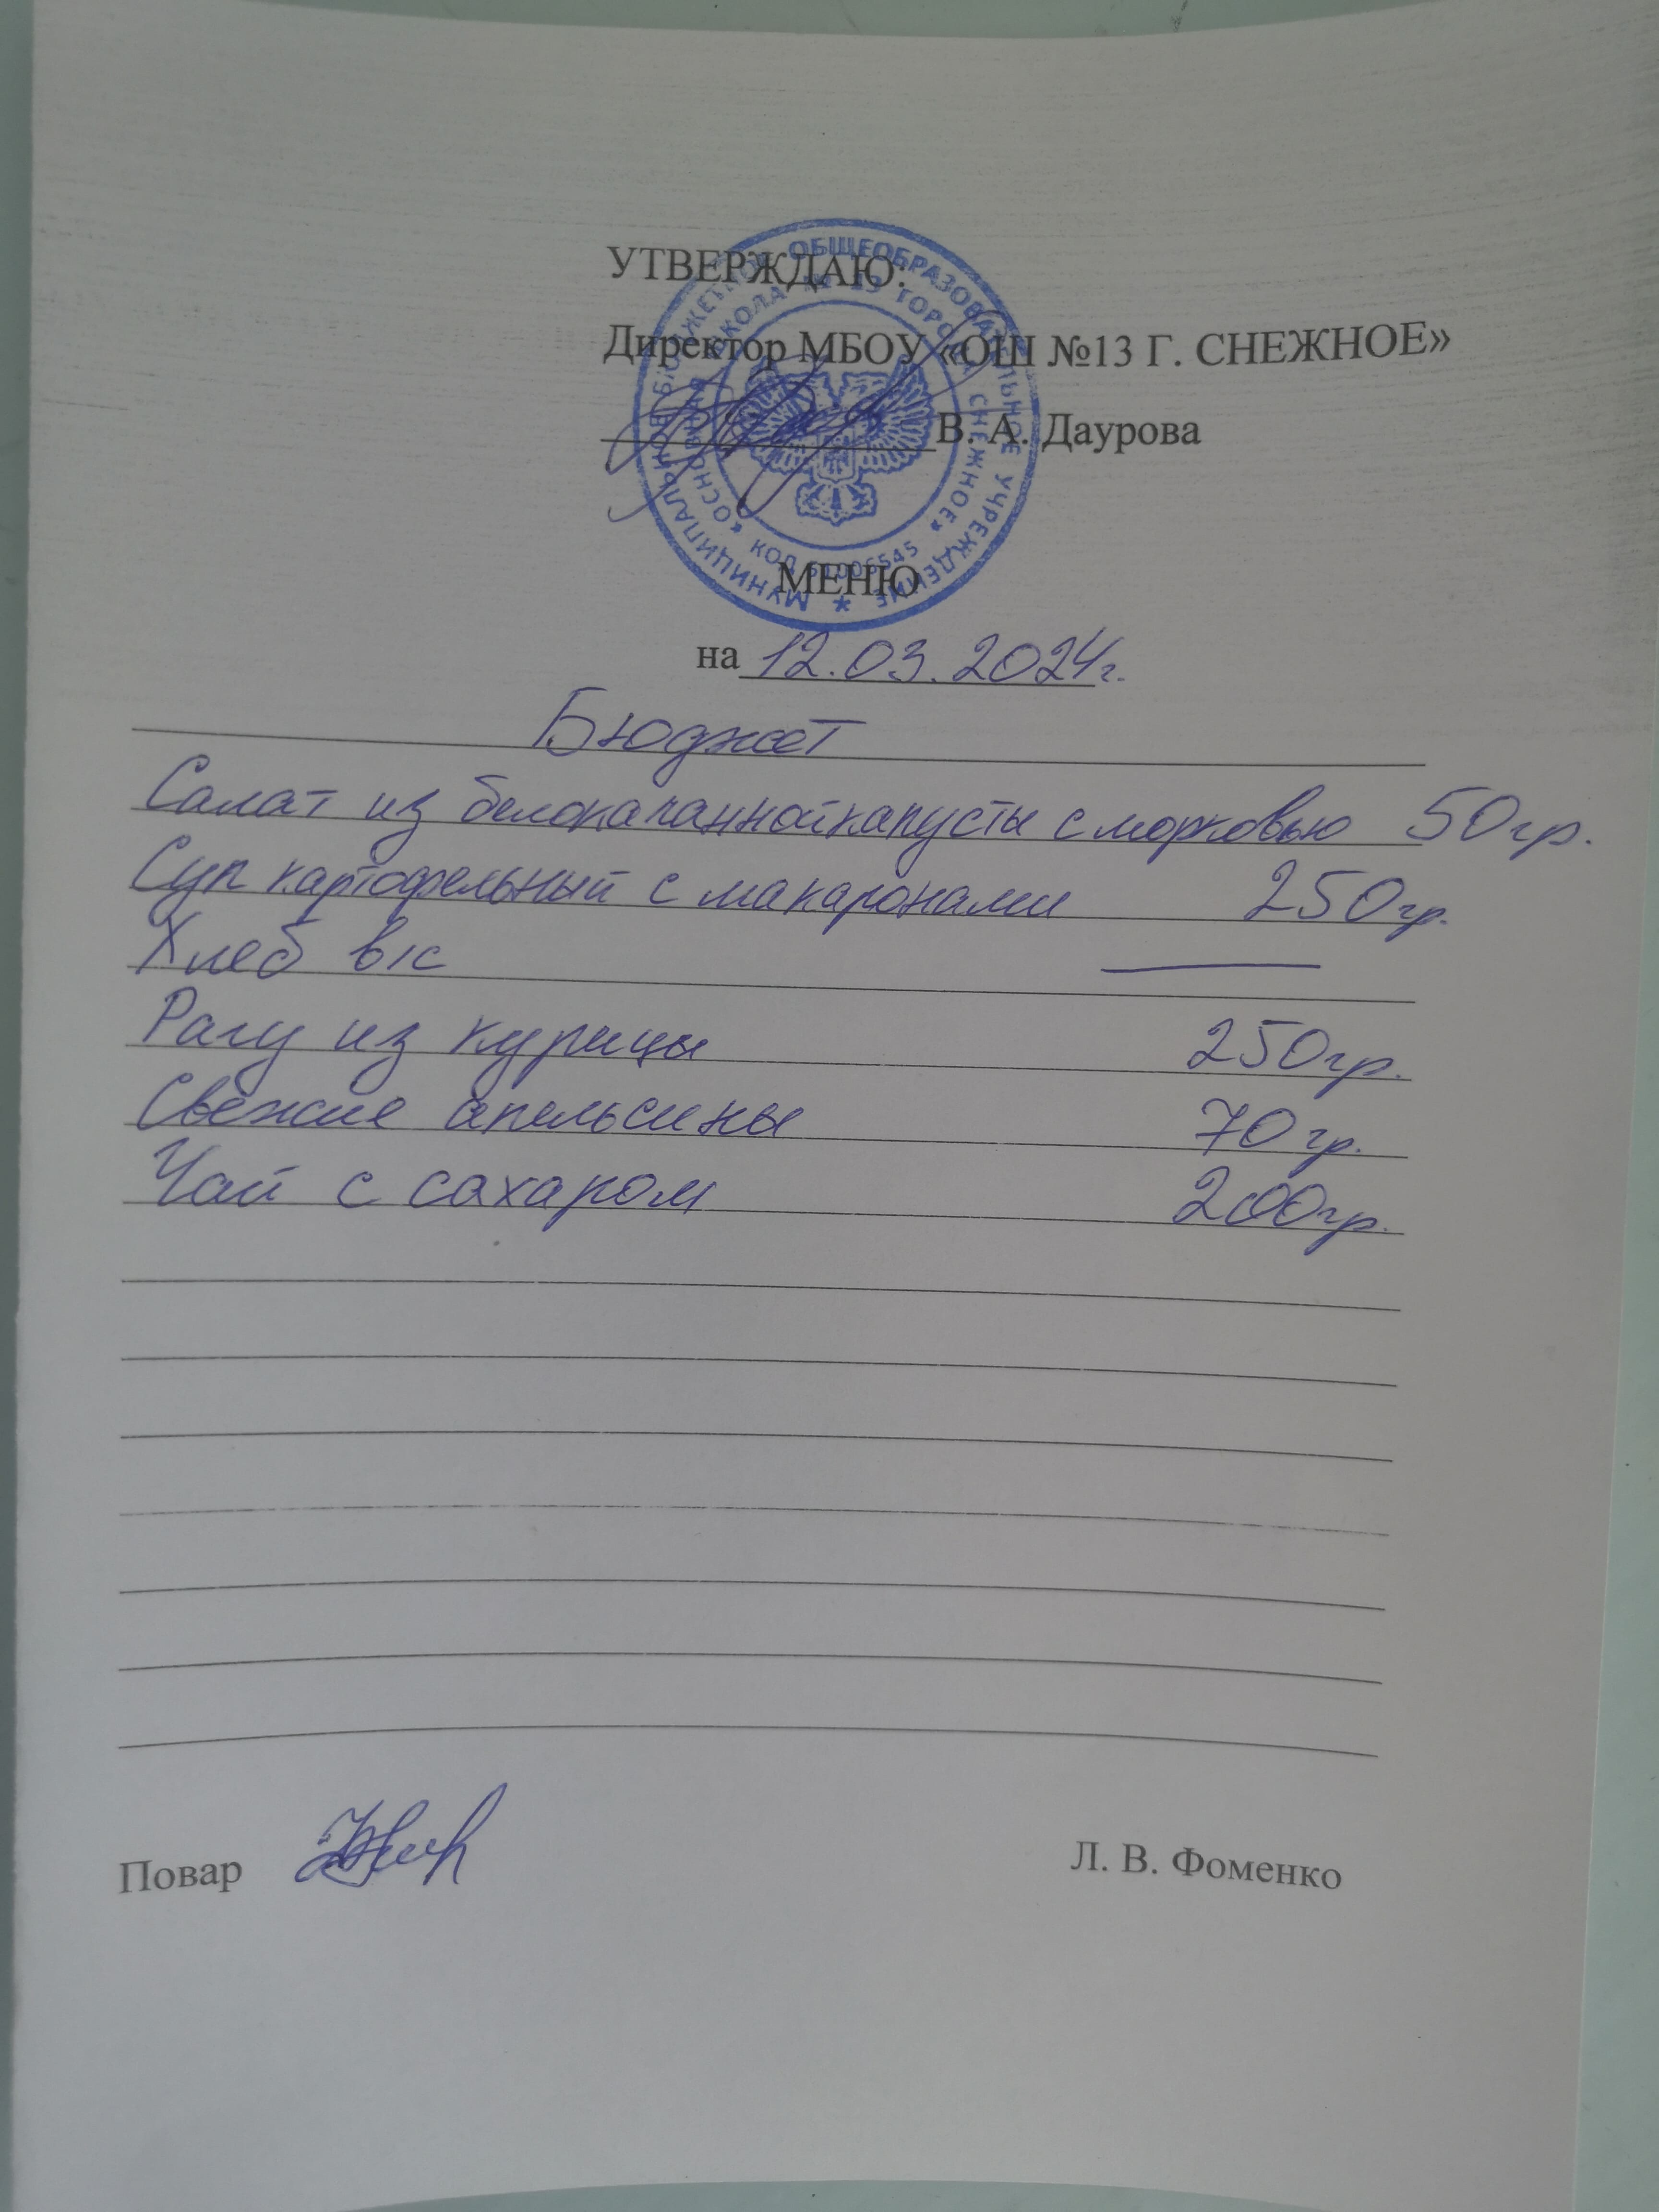 УТВЕРЖДАЮ:
Директор МБОУ «ОШ №13 Г. СНЕЖНОЕ»
В. А. Даурова
МУНИЦИПАЛЬНОЕ БЮДЖЕТНОЕ ОБЩЕОБРАЗОВАТЕЛЬНОЕ УЧРЕЖДЕНИЕ
«ОСНОВНАЯ ШКОЛА № 13 ГОРОДА СНЕЖНОЕ»
КОД
МЕНЮ
на 12.03.2024г.
Бюджет
Салат из белокачанной капусты с морковью 50гр.
Суп картофельный с макаронами 250гр.
Хлеб в/с —
Рагу из курицы 250гр.
Свежие апельсины 70гр.
Чай с сахаром 200гр.
Повар Л. В. Фоменко